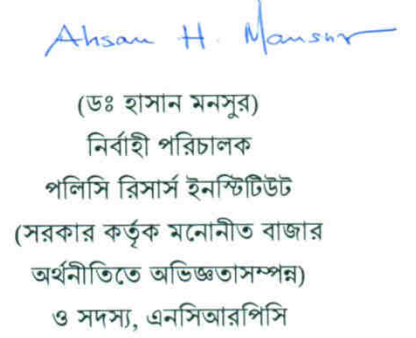 Ahsan H. Mansur
(ডঃ হাসান মনসুর)
নির্বাহী পরিচালক
পলিসি রিসার্স ইনস্টিটিউট
(সরকার কর্তৃক মনোনীত বাজার
অর্থনীতিতে অভিজ্ঞতাসম্পন্ন)
ও সদস্য, এনসিআরপিসি